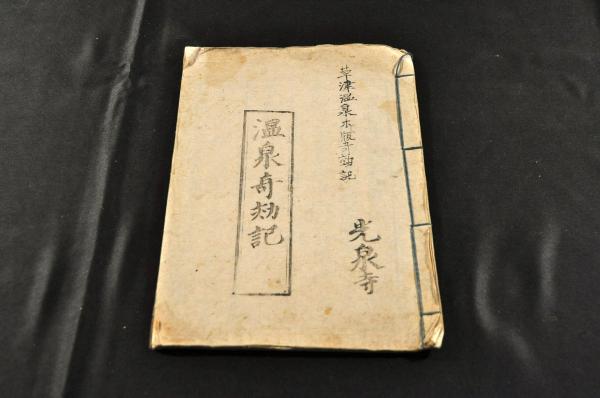 草津温泉木版奇効記
光泉寺
温泉奇効記